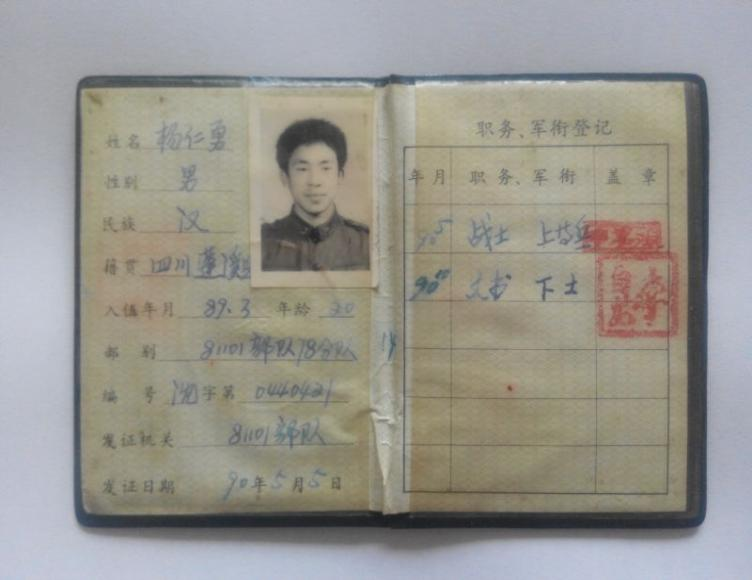 姓名 杨仁勇
性别 男
民族 汉
籍贯 四川蓬溪
入伍年月 89.3 年龄 20
部别 81101部队78分队
编号 沈字第 0440421
发证机关 81101部队
发证日期 90年5月5日
职务、军衔登记
年月 职务、军衔 盖章
90.5 战士 上等兵
90 文书 下士